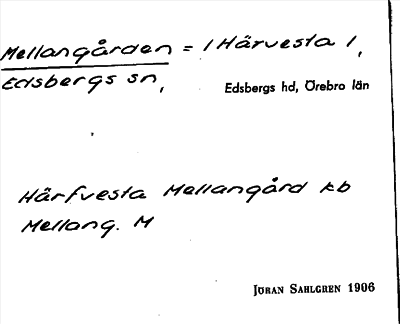 Mellangården = / Härvesta /,
Edsbergs sn, Edsbergs hd, Örebro län
Härfvesta Mellangård kb
Mellang. M
JÖRAN SAHLGREN 1906